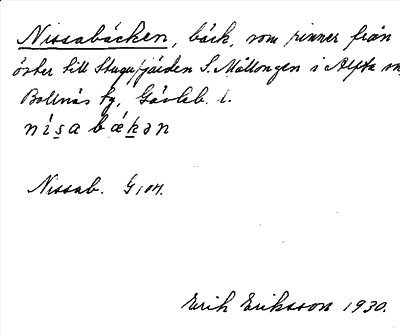 Nissabäcken, bäck, som rinner från
öster till Stugufjärden S. Mållongen i Alfta sn,
Bollnäs tg, Gävleb. l.
nísa bǽkən
Nissab. G 104.
Erik Eriksson 1930.